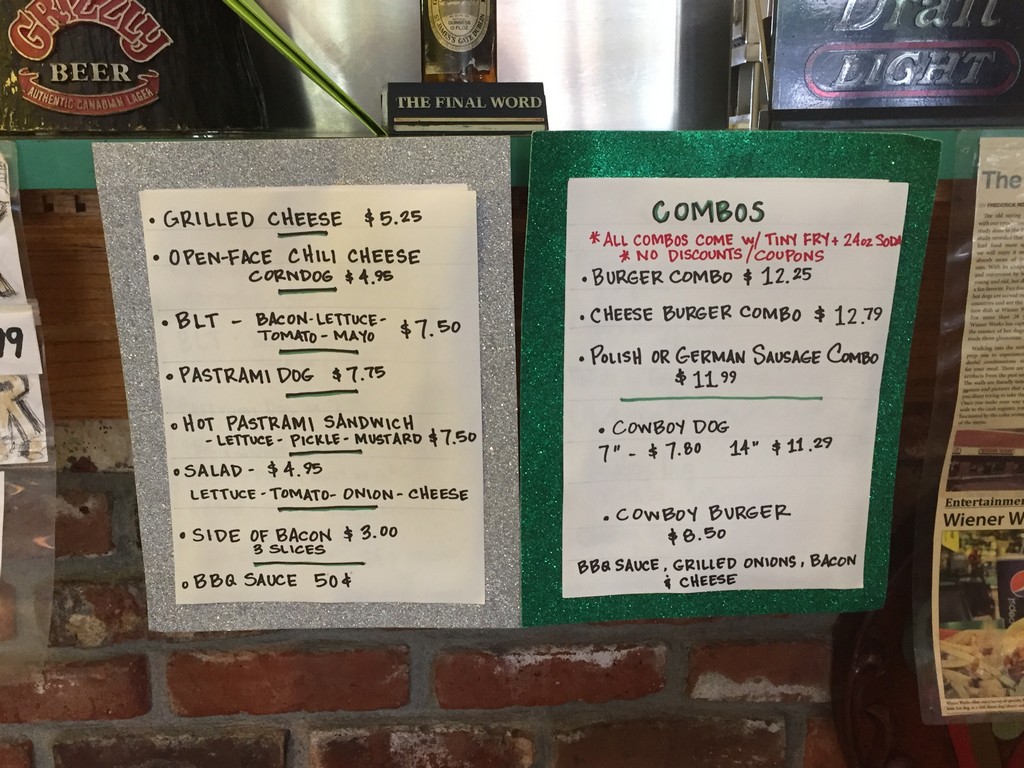 GRIZZLY
BEER
AUTHENTIC CANADIAN LAGER
THE FINAL WORD
Draft
LIGHT
• GRILLED CHEESE $5.25
• OPEN-FACE CHILI CHEESE
CORNDOG $4.95
• BLT - BACON-LETTUCE-
TOMATO-MAYO $7.50
• PASTRAMI DOG $7.75
• HOT PASTRAMI SANDWICH
-LETTUCE-PICKLE-MUSTARD $7.50
• SALAD - $4.95
LETTUCE-TOMATO-ONION-CHEESE
• SIDE OF BACON $3.00
3 SLICES
• BBQ SAUCE 50¢
COMBOS
* ALL COMBOS COME W/ TINY FRY + 24oz SODA
* NO DISCOUNTS/COUPONS
• BURGER COMBO $12.25
• CHEESE BURGER COMBO $12.79
• POLISH OR GERMAN SAUSAGE COMBO
$11.99
• COWBOY DOG
7" - $7.80 14" $11.29
• COWBOY BURGER
$8.50
BBQ SAUCE, GRILLED ONIONS, BACON
& CHEESE
99
R
The
BY FREDERICK
Entertainme
Wiener W
pepsi